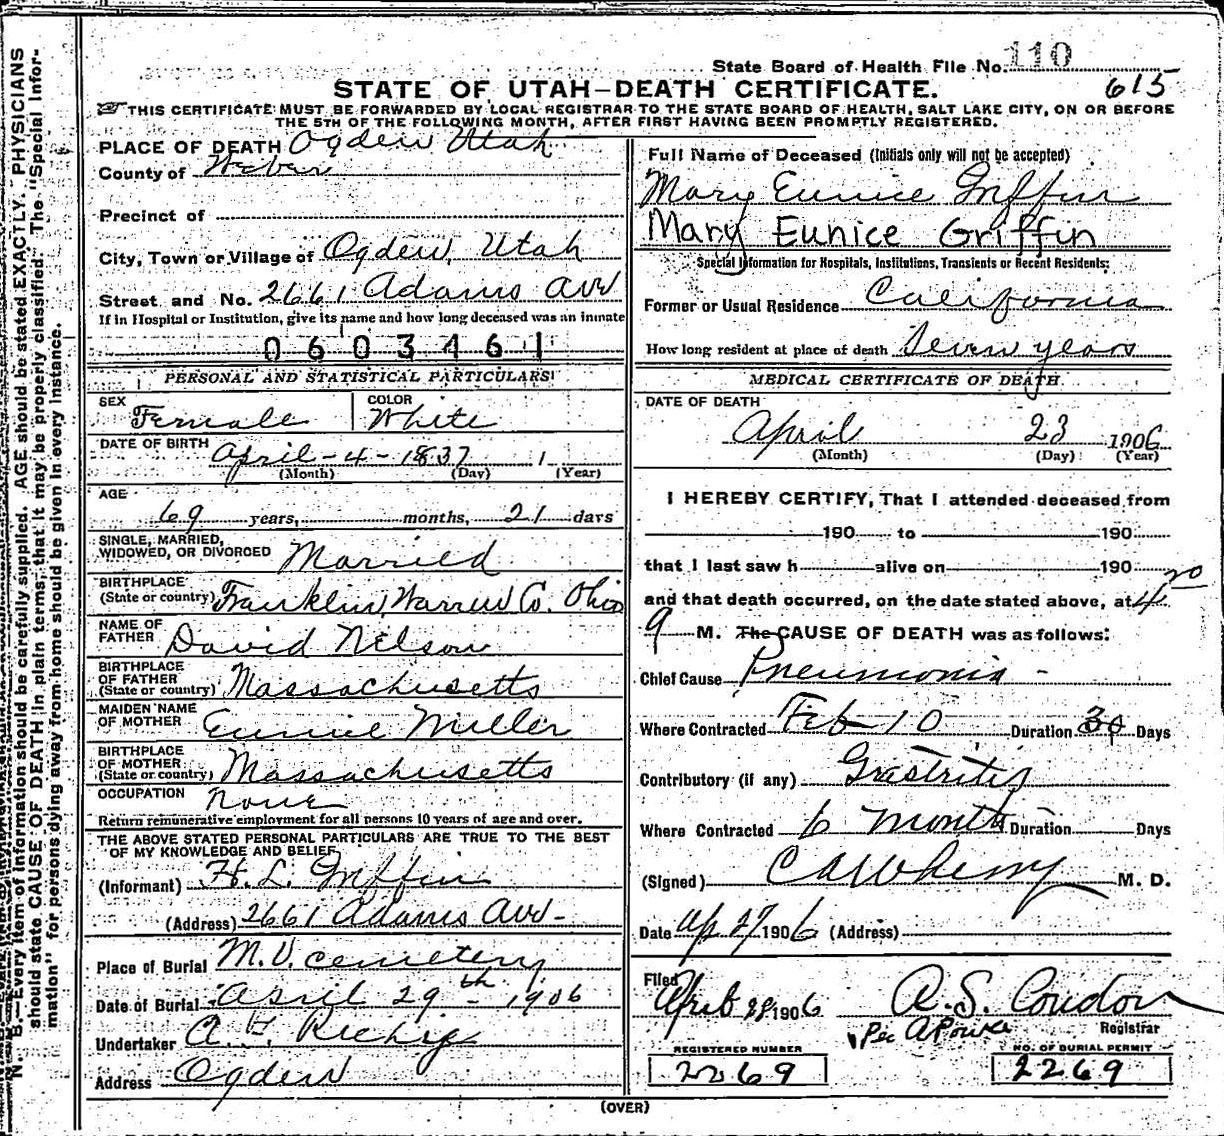 State Board of Health File No. 110
615
STATE OF UTAH—DEATH CERTIFICATE.
THIS CERTIFICATE MUST BE FORWARDED BY LOCAL REGISTRAR TO THE STATE BOARD OF HEALTH, SALT LAKE CITY, ON OR BEFORE
THE 5TH OF THE FOLLOWING MONTH, AFTER FIRST HAVING BEEN PROMPTLY REGISTERED.
N. B.—Every item of information should be carefully supplied. AGE should be stated EXACTLY. PHYSICIANS
should state CAUSE OF DEATH in plain terms, that it may be properly classified. The "Special Infor-
mation" for persons dying away from home should be given in every instance.
PLACE OF DEATH Ogden Utah
County of Weber
Precinct of
City, Town or Village of Ogden, Utah
Street and No. 2661 Adams Ave
If in Hospital or Institution, give its name and how long deceased was an inmate
0603461
PERSONAL AND STATISTICAL PARTICULARS
SEX Female COLOR White
DATE OF BIRTH April - 4 - 1837
(Month) (Day) (Year)
AGE
69 years, months, 21 days
SINGLE, MARRIED,
WIDOWED, OR DIVORCED Married
BIRTHPLACE
(State or country) Franklin, Warren Co. Ohio
NAME OF
FATHER David Nelson
BIRTHPLACE
OF FATHER
(State or country) Massachusetts
MAIDEN NAME
OF MOTHER Eunice Miller
BIRTHPLACE
OF MOTHER
(State or country) Massachusetts
OCCUPATION None
Return remunerative employment for all persons 10 years of age and over.
THE ABOVE STATED PERSONAL PARTICULARS ARE TRUE TO THE BEST
OF MY KNOWLEDGE AND BELIEF
(Informant) H. L. Griffin
(Address) 2661 Adams Ave-
Place of Burial M.V. cemetery
Date of Burial April 29th - 1906
Undertaker
Address Ogden
Full Name of Deceased (Initials only will not be accepted)
Mary Eunice Griffin
Mary Eunice Griffin
Special Information for Hospitals, Institutions, Transients or Recent Residents:
Former or Usual Residence California
How long resident at place of death Seven years
MEDICAL CERTIFICATE OF DEATH
DATE OF DEATH
April 23 1906
(Month) (Day) (Year)
I HEREBY CERTIFY, That I attended deceased from
190 to 190
that I last saw h alive on 190
and that death occurred, on the date stated above, at 4 20
M. The CAUSE OF DEATH was as follows:
Chief Cause Pneumonia -
Where Contracted Feb 10 Duration 30 Days
Contributory (if any) Gastritis
Where Contracted 6 Month Duration Days
(Signed) M. D.
Date Ap 27 1906 (Address)
Filed
April 28 1906 Registrar
REGISTERED NUMBER
2269
NO. OF BURIAL PERMIT
2269
(OVER)